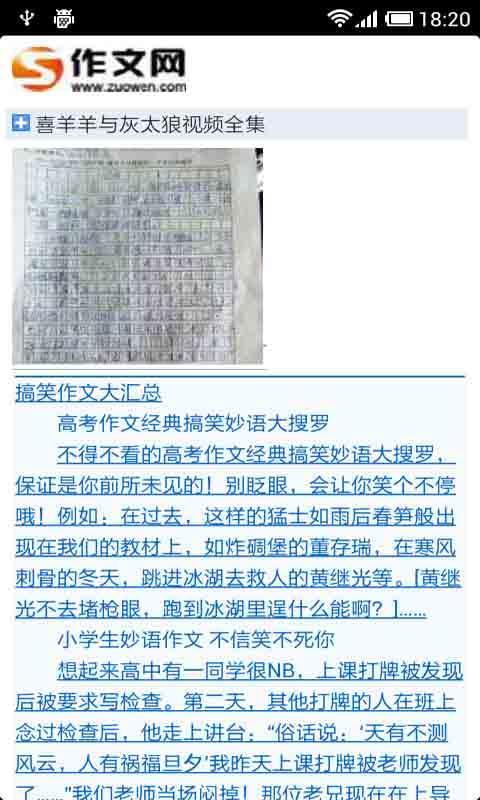 18:20
作文网
www.zuowen.com
喜羊羊与灰太狼视频全集
搞笑作文大汇总
高考作文经典搞笑妙语大搜罗
不得不看的高考作文经典搞笑妙语大搜罗，
保证是你前所未见的！别眨眼，会让你笑个不停
哦！例如：在过去，这样的猛士如雨后春笋般出
现在我们的教材上，如炸碉堡的董存瑞，在寒风
刺骨的冬天，跳进冰湖去救人的黄继光等。[黄继
光不去堵枪眼，跑到冰湖里逞什么能啊？]......
小学生妙语作文 不信笑不死你
想起来高中有一同学很NB，上课打牌被发现
后被要求写检查。第二天，其他打牌的人在班上
念过检查后，他走上讲台：“俗话说：‘天有不测
风云，人有祸福旦夕’我昨天上课打牌被老师发现
了......”我们老师当场闷掉！那位老兄现在在上导